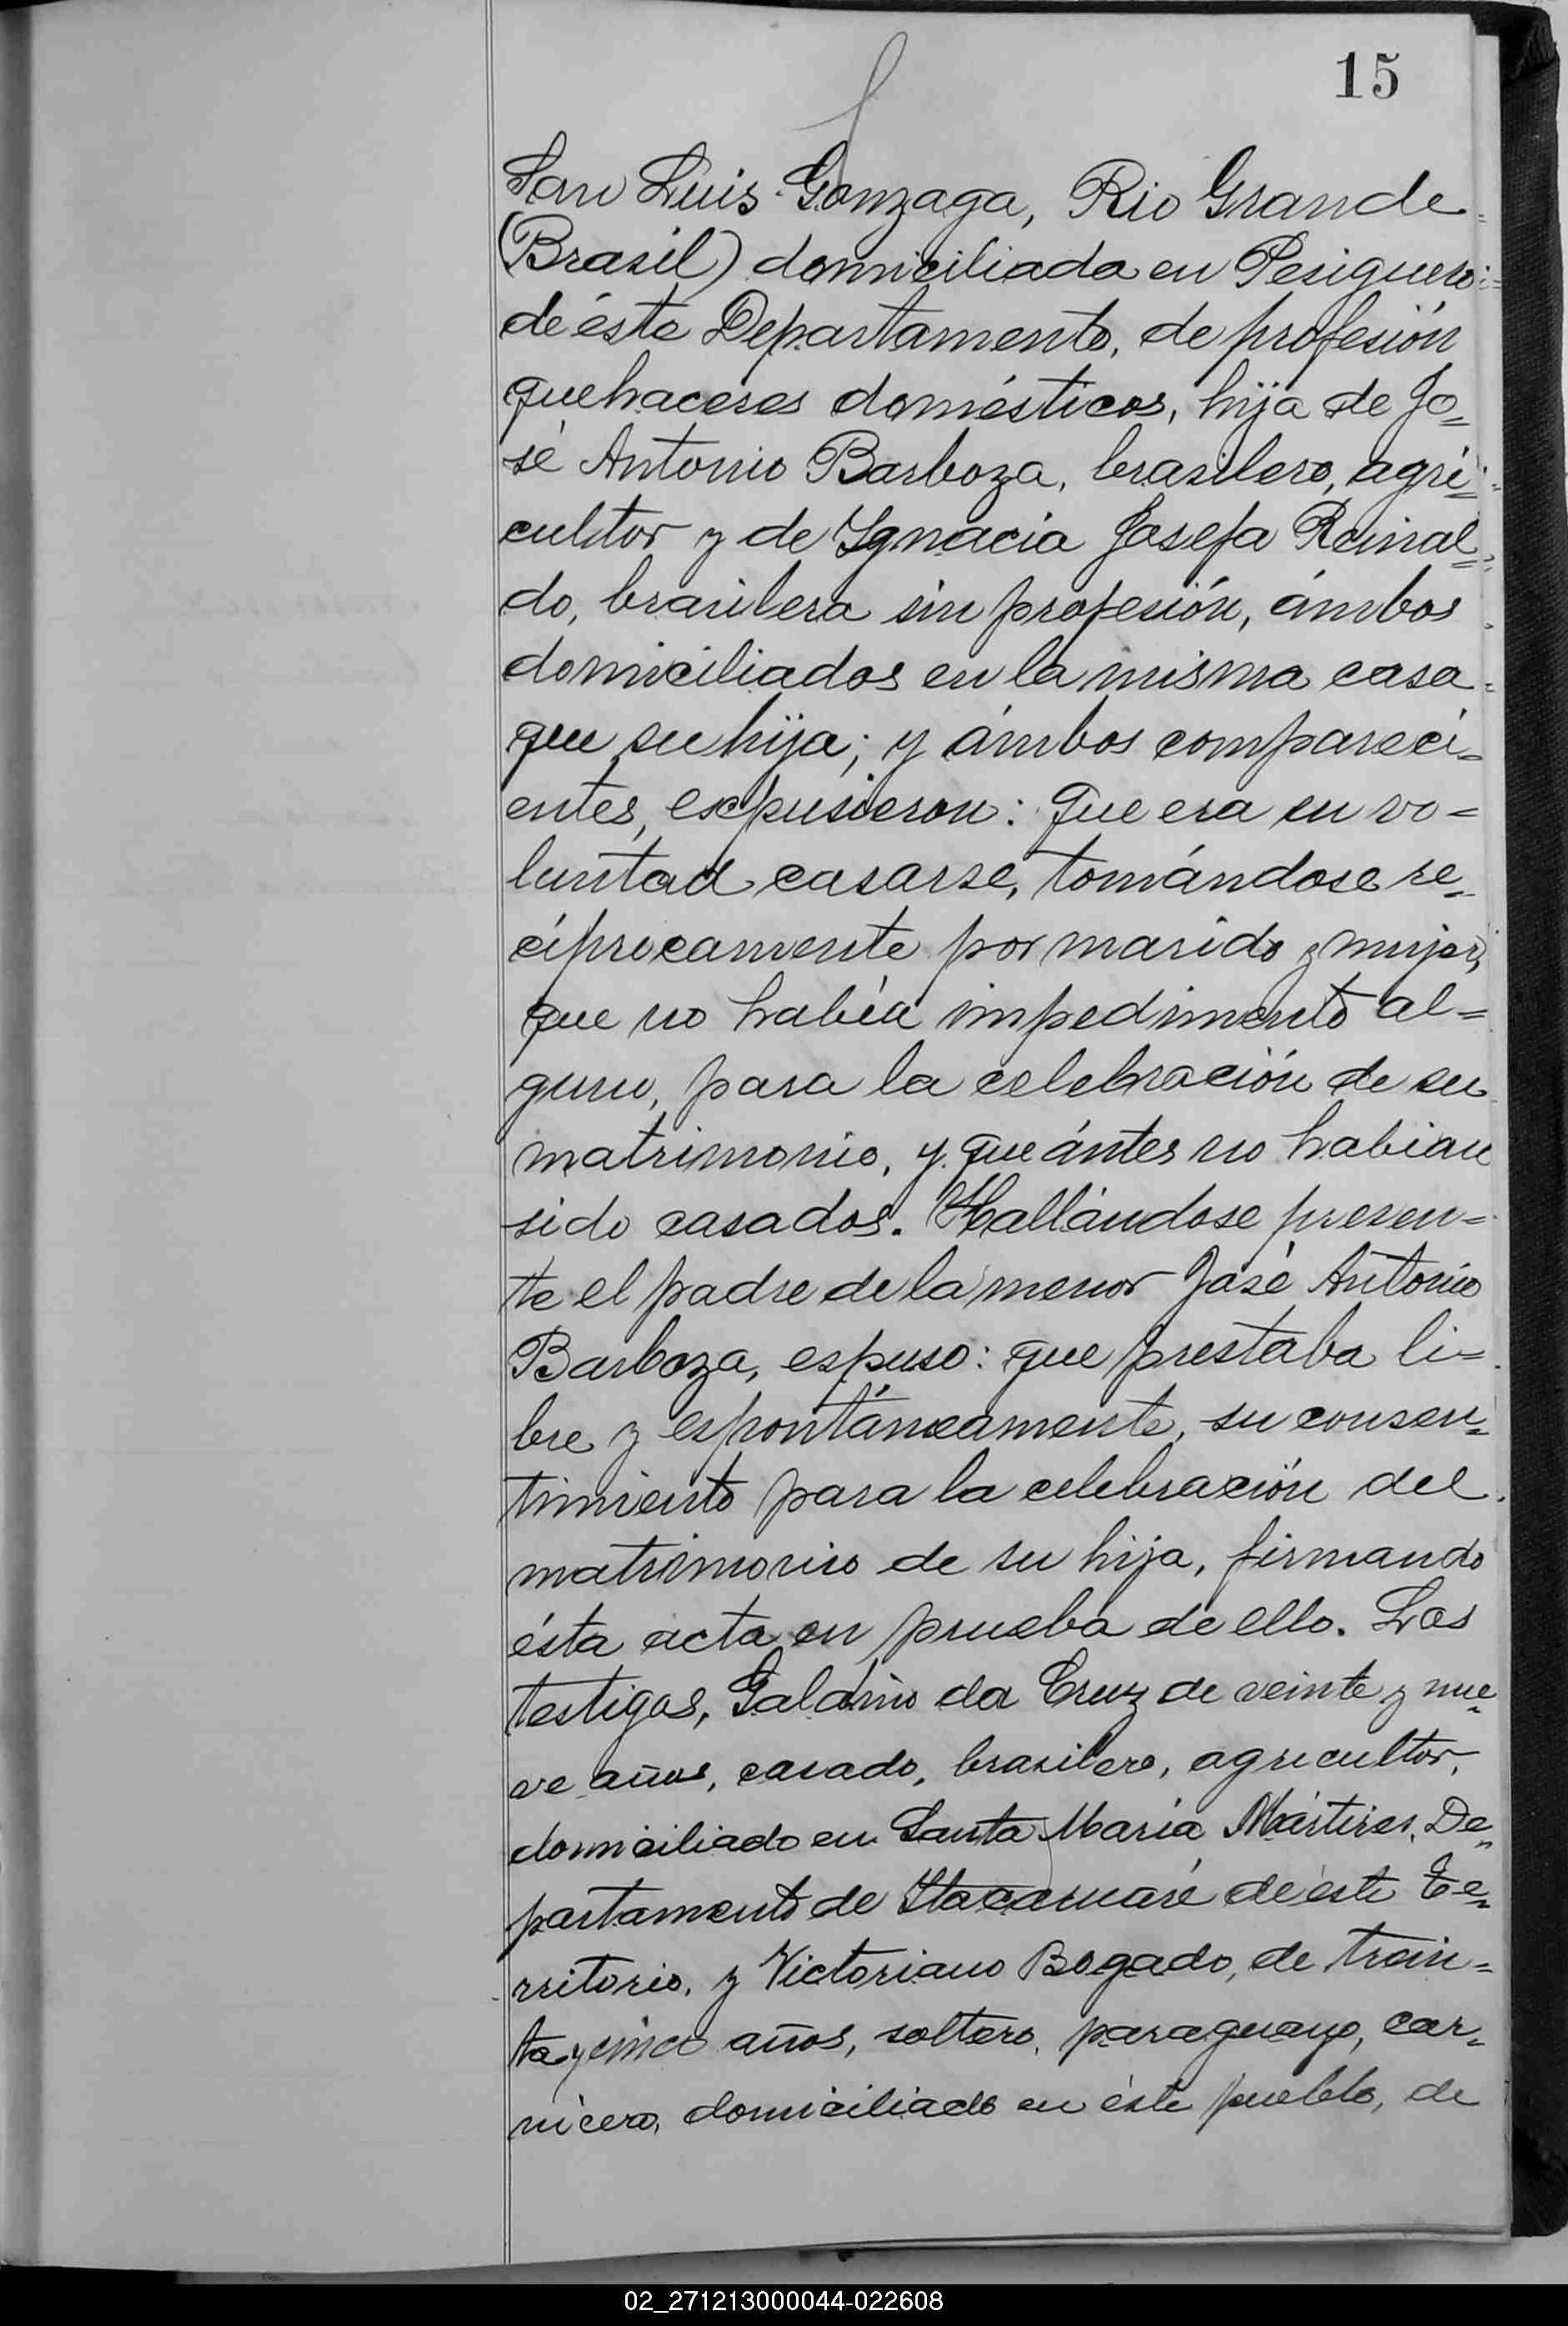 15
San Luis Gonzaga, Rio Grande=
(Brasil) domiciliada en Pesiguero
de éste Departamento, de profesión
quehaceres domésticos, hija de Jo=
sé Antonio Barboza, brasilero, agri=
cultor y de Ygnacia Josefa Reinal=
do, brasilera sin profesión, ámbos
domiciliados en la misma casa
que su hija; y ámbos compareci=
entes, expusieron: Que era su vo=
luntad casarse, tomándose re=
cíprocamente por marido y mujer,
que no había impedimento al=
guno, para la celebración de su
matrimonio, y que ántes no habian
sido casados. Hallándose presen=
te el padre de la menor José Antonio
Barboza, espuso: que prestaba li=
bre y espontáneamente, su consen=
timiento para la celebración del
matrimonio de su hija, firmando
ésta acta en prueba de ello. Los
testigos, Galdino da Cruz de veinte y nue=
ve años, casado, brasilero, agricultor,
domiciliado en Santa María Mártires, De=
partamento de Itacaruaré de éste Te=
rritorio, y Victoriano Bogado, de trein=
ta y cinco años, soltero, paraguayo, car=
nicero, domiciliado en éste pueblo, de
02_271213000044-022608